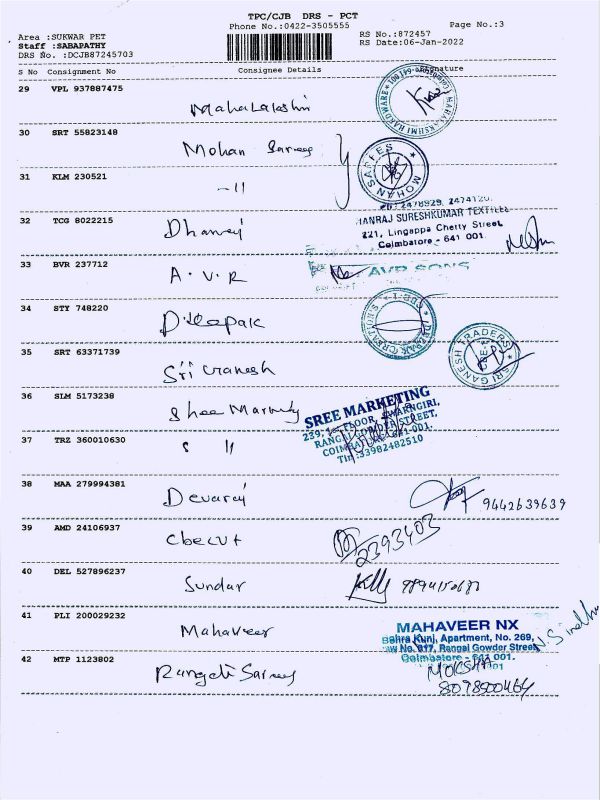 TPC/CJB DRS - PCT
Phone No.:0422-3505555
Page No.:3
Area :SUKWAR PET
Staff :SABAPATHY
DRS No. :DCJB87245703
RS No.:872457
RS Date:06-Jan-2022
S No Consignment No Consignee Details Signature
29 VPL 937887475
Mahalakshmi
30 SRT 55823148
Mohan Sarees
MOHAN SAREES
31 KLM 230521
-11
32 TCG 8022215
Dhanraj
2474120
HANRAJ SURESHKUMAR TEXTILES
221, Lingappa Chetty Street,
Coimbatore - 641 001.
33 BVR 237712
A.V.R
AVR SONS
34 STY 748220
Deepak
DEEPAK CREATIONS
35 SRT 63371739
Sri Ganesh
SRI GANESH TRADERS
36 SLM 5173238
Shee
SREE MARKETING
239, FLOOR, SWARNGIRI,
RANGAI GOWDER STREET,
COIMBATORE 641-001.
Tin :33982482510
37 TRZ 360010630
S 11
38 MAA 279994381
Devaraj
9442639639
39 AMD 24106937
Cbecut
2393403
40 DEL 527896237
Sundar
41 PLI 200029232
Mahaveer
MAHAVEER NX
Kunj, Apartment, No. 269,
Rangai Gowder Street,
Coimbatore - 641 001.
42 MTP 1123802
Rangoli Sarees
MOKSHA